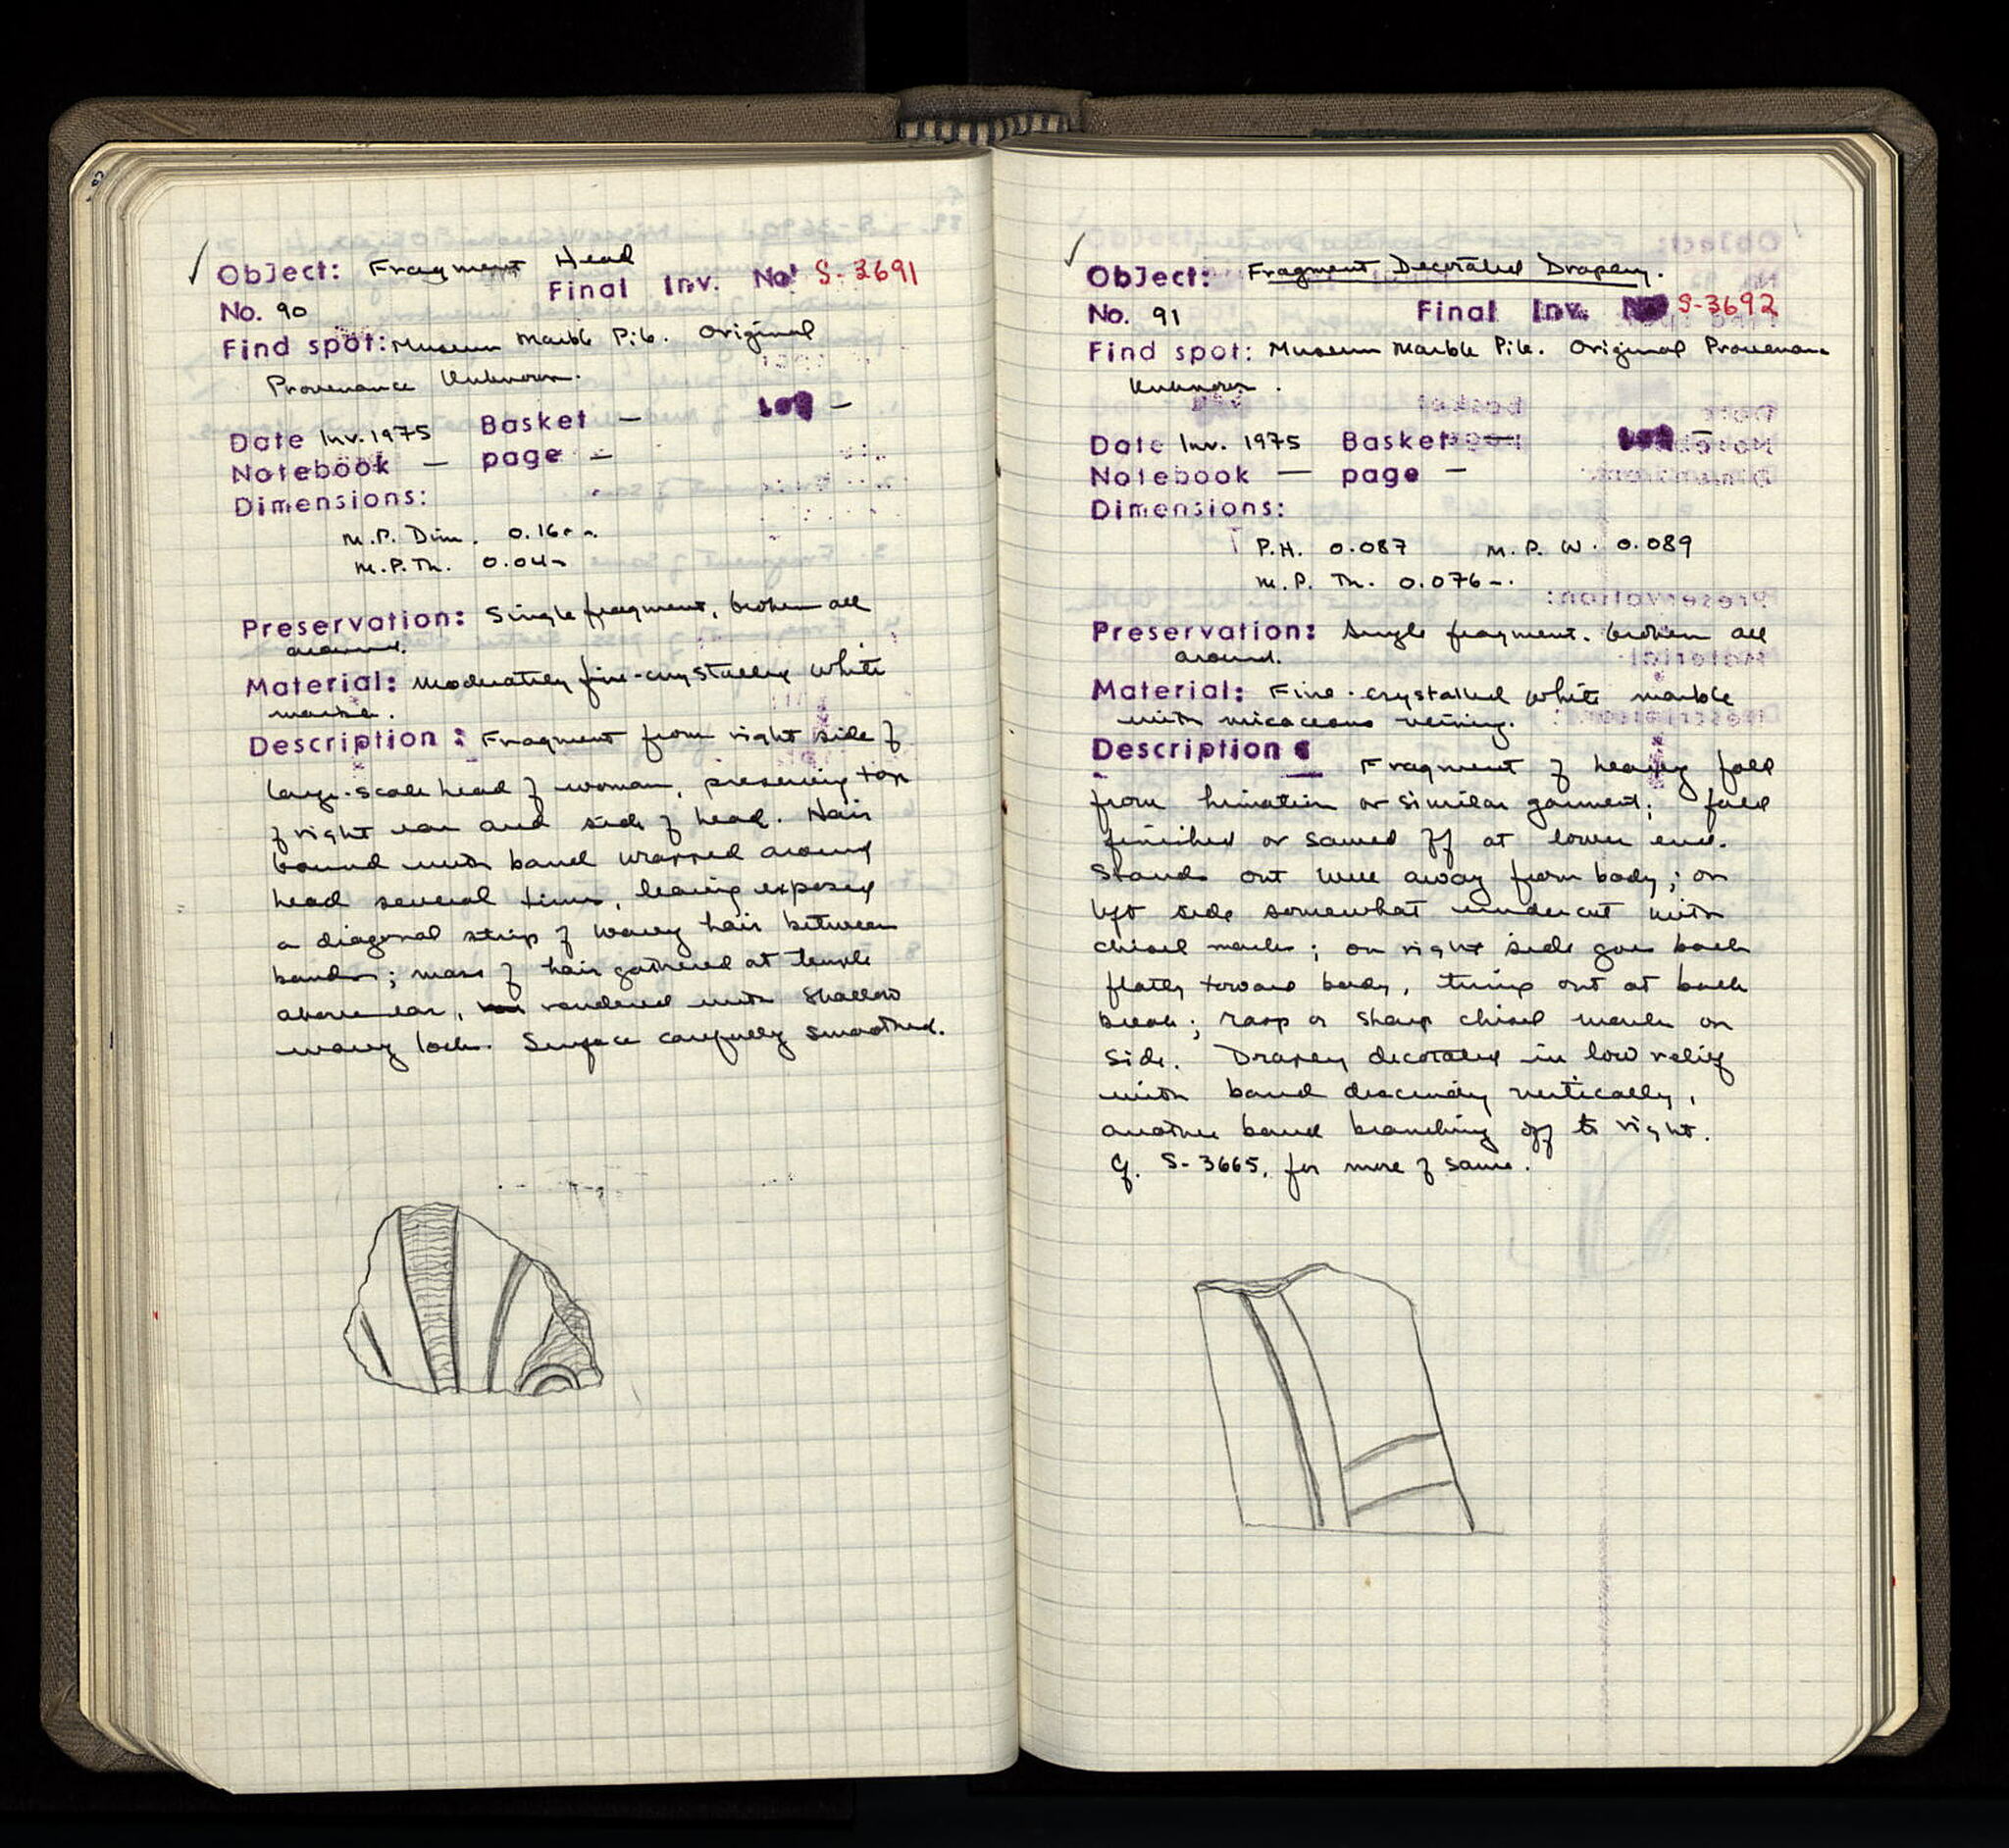 ✓ Object: Fragment Head
Final Inv. No. S-3691
No. 90
Find spot: Museum Marble Pile. Original
Provenance Unknown.
Date Inv. 1975 Basket — Lot —
Notebook — page —
Dimensions:
M.P. Dim. 0.16
M.P.Th. 0.04
Preservation: Single fragment, broken all
around.
Material: Moderately fine-crystalled white
marble.
Description: Fragment from right side of
large-scale head of woman, preserving top
of right ear and side of head. Hair
bound with band wrapped around
head several times, leaving exposed
a diagonal strip of wavy hair between
bands; mass of hair gathered at temple
above ear, rendered with shallow
wavy locks. Surface carefully smoothed.
✓ Object: Fragment Decorated Drapery.
No. 91 Final Inv. No S-3692
Find spot: Museum Marble Pile. Original Provenance
Unknown.
Date Inv. 1975 Basket — Lot —
Notebook — page —
Dimensions:
P.H. 0.087 M.P.W. 0.089
M.P. Th. 0.076
Preservation: Single fragment. broken all
around.
Material: Fine-crystalled white marble
with micaceous veining.
Description: Fragment of heavy fold
from himation or similar garment; fold
finished or sawed off at lower end.
Stands out well away from body; on
left side somewhat undercut with
chisel marks; on right side goes back
flatly toward body, turning out at back
break; rasp or sharp chisel marks on
side. Drapery decorated in low relief
with band descending vertically,
another band branching off to right.
Cf. S-3665, for more of same.